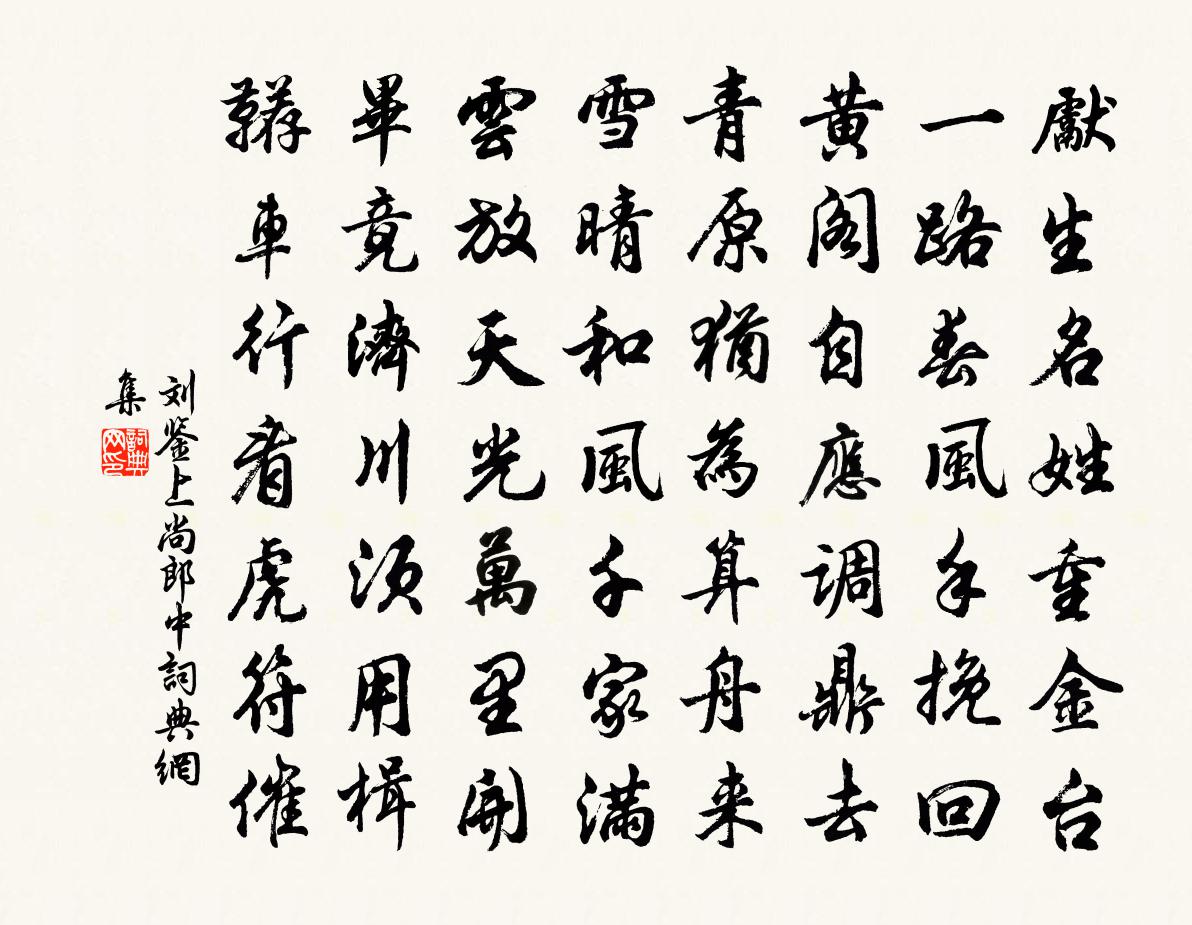 獻生名姓重金台
一路春風手挽回
黄阁自應调鼎去
青原猶為算舟来
雪晴和風千家满
雲放天光萬里開
畢竟濟川須用楫
鞯車行看虎符催
刘鉴上尚郎中詞典網
集
詞典网印